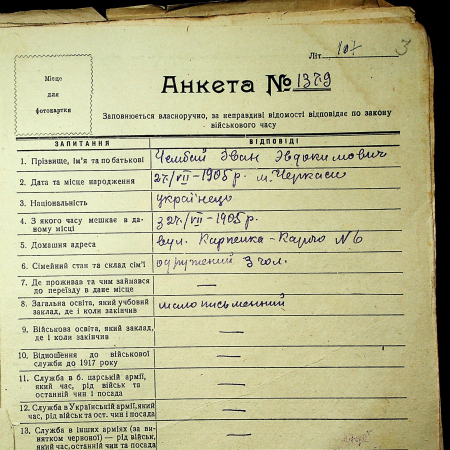 Літ. 107 3
Місце
для
фотокартки
Анкета № 1379
Заповнюється власноручно, за неправдиві відомості відповідає по закону
військового часу
ЗАПИТАННЯ ВІДПОВІДІ
1. Прізвище, ім'я та по батькові Чембай Іван Евдокимович
2. Дата та місце народження 27/VII-1905 р. м. Черкаси
3. Національність українець
4. З якого часу мешкає в да-
ному місці з 27/VII-1905 р.
5. Домашня адреса вул. Карпенка-Карого №6
6. Сімейний стан та склад сім'ї одружений 3 чол.
7. Де проживав та чим займався
до переїзду в дане місце —
8. Загальна освіта, який учбовий
заклад, де і коли закінчив мало письменний
9. Військова освіта, який заклад,
де і коли закінчив —
10. Відношення до військової
служби до 1917 року —
11. Служба в б. царській армії,
який час, рід військ та
останній чин і посада —
12. Служба в Українській армії, який
час, рід військ та ост. чин і посада —
13. Служба в інших арміях (за ви-
нятком червоної) — рід військ,
який час, останній чин та посада —